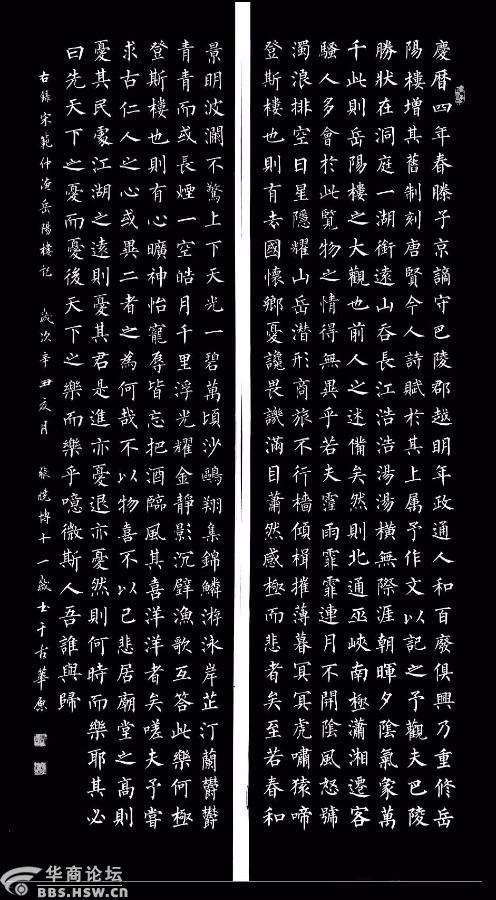 慶曆四年春滕子京謫守巴陵郡越明年政通人和百廢俱興乃重修岳
陽樓增其舊制刻唐賢今人詩賦於其上属予作文以記之予觀夫巴陵
勝狀在洞庭一湖銜遠山吞長江浩浩湯湯橫無際涯朝暉夕陰氣象萬
千此則岳陽樓之大觀也前人之述備矣然則北通巫峽南極瀟湘遷客
騷人多會於此覽物之情得無異乎若夫霪雨霏霏連月不開陰風怒號
濁浪排空日星隱耀山岳潛形商旅不行檣傾楫摧薄暮冥冥虎嘯猿啼
登斯樓也則有去國懷鄉憂讒畏譏滿目蕭然感極而悲者矣至若春和
景明波瀾不驚上下天光一碧萬頃沙鷗翔集錦鱗游泳岸芷汀蘭鬱鬱
青青而或長煙一空皓月千里浮光耀金靜影沉璧漁歌互答此樂何極
登斯樓也則有心曠神怡寵辱皆忘把酒臨風其喜洋洋者矣嗟夫予嘗
求古仁人之心或異二者之為何哉不以物喜不以己悲居廟堂之高則
憂其民處江湖之遠則憂其君是進亦憂退亦憂然則何時而樂耶其必
曰先天下之憂而憂後天下之樂而樂乎噫微斯人吾誰與歸
右錄宋範仲淹岳陽樓記 歲次辛丑夏月 張晓博十一歲于古華原
华商论坛
BBS.HSW.CN